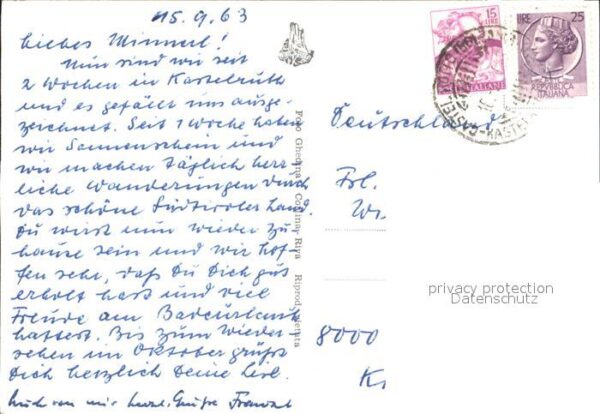 15.9.63
Liebes Mimmerl!
Nun sind wir seit
2 Wochen in Kastelruth
und es gefällt uns ausge-
zeichnet. Seit 1 Woche haben
wir Sonnenschein und
wir machen täglich herr-
liche Wanderungen durch
das schöne Südtiroler Land.
Du wirst nun wieder zu
hause sein und wir hof-
fen sehr, daß Du Dich gut
erholt hast und viel
Freude am Badeurlaub
hattest. Bis zum Wieder-
sehen im Oktober grüßt
Dich herzlich Deine Liesl.
Auch von mir herzl. Grüße Franzl
Foto Ghedina - Cortina, Riva Riprod. vietata
15
LIRE
ITALIANE
LIRE 25
REPUBBLICA
ITALIANA
CASTELROTTO
KASTELRUTH
Deutschland
Frl.
8000
privacy protection
Datenschutz